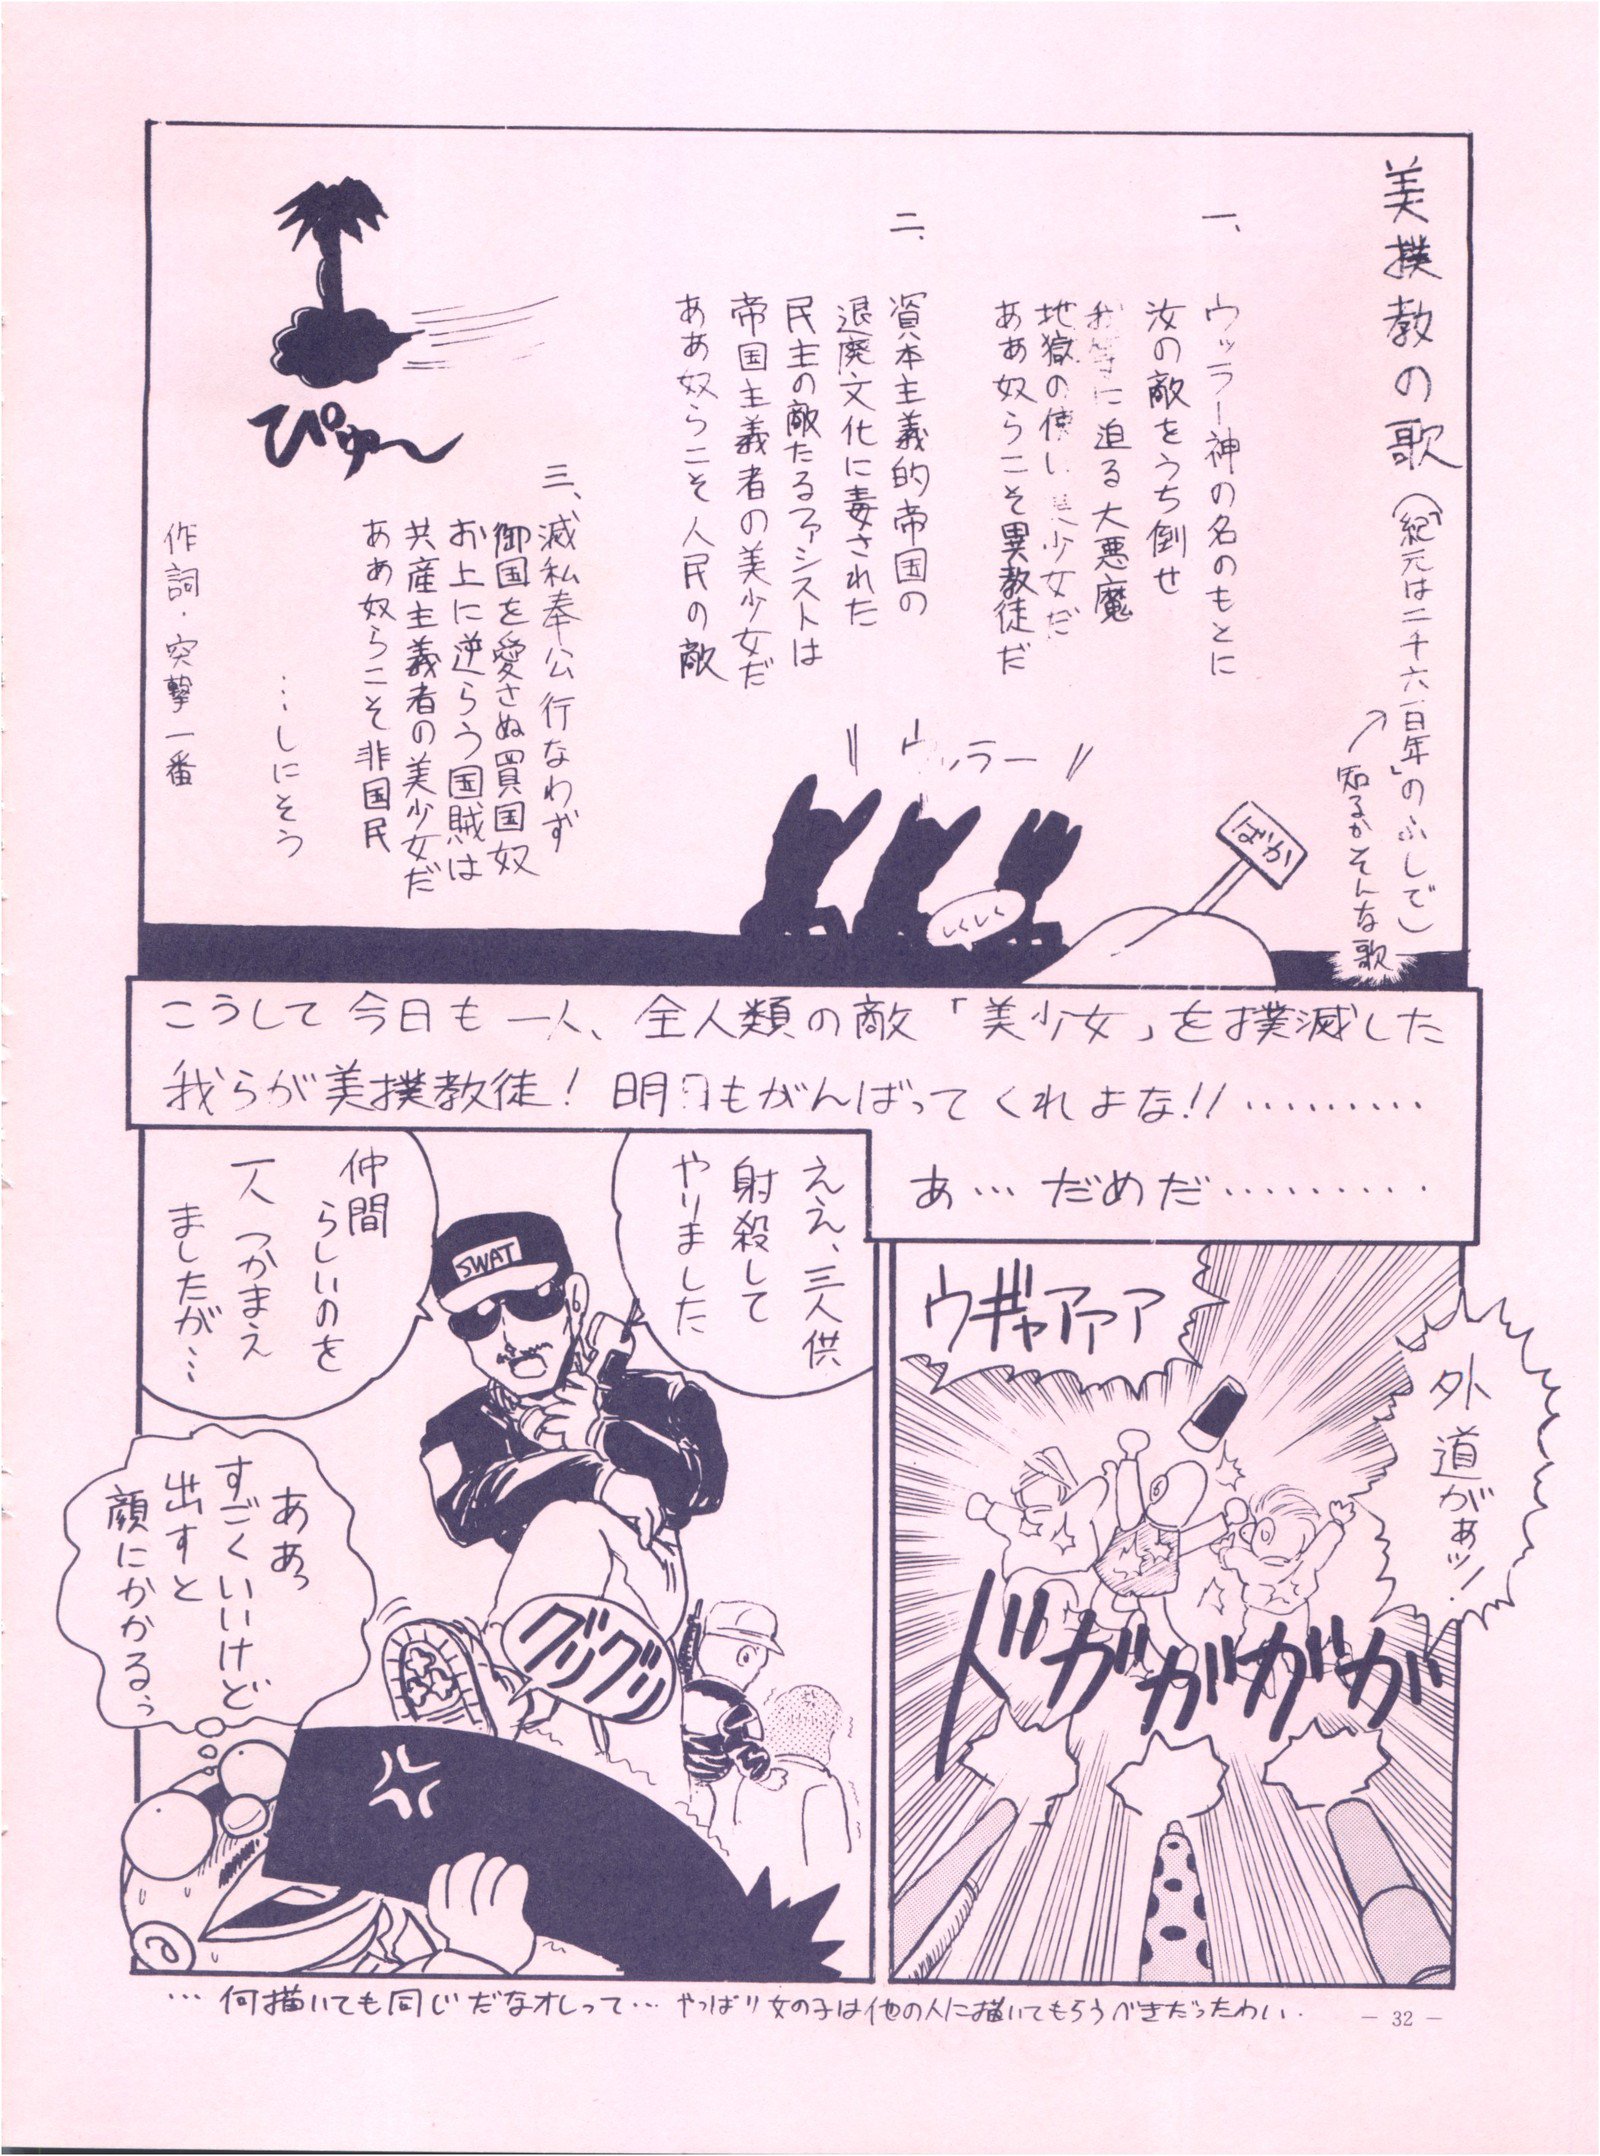 美撲教の歌
(「紀元は二千六百年」のふしで)
知るかそんな歌
一、
ウッラー神の名のもとに
汝の敵をうち倒せ
に迫る大悪魔
地獄の使い 美少女だ
ああ奴らこそ異教徒だ
二、
資本主義的帝国の
退廃文化に毒された
民主の敵たるファシストは
帝国主義者の美少女だ
ああ奴らこそ人民の敵
三、
滅私奉公行なわず
御国を愛さぬ買国奴
お上に逆らう国賊は
共産主義者の美少女だ
ああ奴らこそ非国民
…しにそう
作詞・突撃一番
ぴゅ〜
ウッラー
しくしく
ばか
こうして今日も一人、全人類の敵「美少女」を撲滅した
我らが美撲教徒!明日もがんばってくれよな!!………
あ…だめだ………
外道がぁッ!
ウギャアァア
ドガガガガ
ええ、三人供
射殺して
やりました
仲間
らしいのを
一人つかまえ
ましたが…
SWAT
グリグリ
ああっ
すごくいいけど
出すと
顔にかかるぅ
…何描いても同じだなオレって…やっぱり女の子は他の人に描いてもらうべきだったわい.
— 32 —